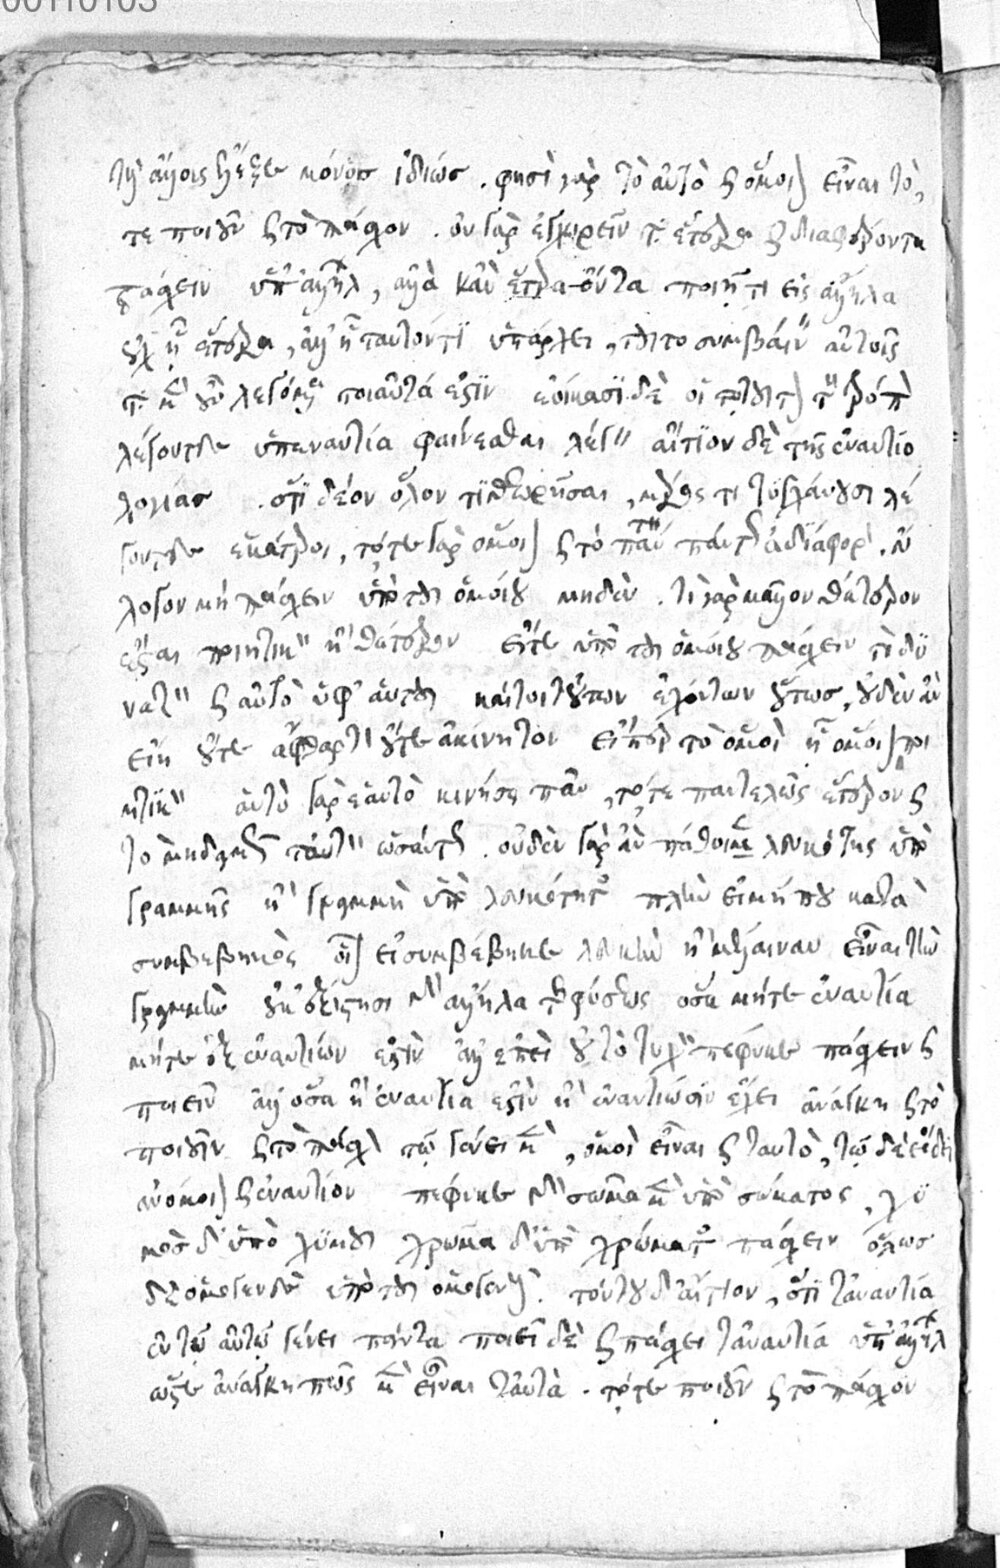 τοὺς ἄλλους ἔλεξε μόνος ἰδίως . φησὶ γὰρ τὸ αὐτὸ καὶ ὅμοιον εἶναι τό,
τε ποιοῦν καὶ τὸ πάσχον . οὐ γὰρ ἐγχωρεῖν τὰ ἕτερα καὶ διαφέροντα
πάσχειν ὑπ' ἀλλήλων, ἀλλὰ κἂν ἕτερα ὄντα ποιῇ τι εἰς ἄλληλα
οὐχ ᾗ ἕτερα, ἀλλ' ᾗ ταυτόν τι ὑπάρχει, ταύτῃ τοῦτο συμβαίνειν αὐτοῖς
τὰ μὲν οὖν λεγόμενα ταῦτά ἐστιν ἐοίκασι δὲ οἱ τοῦτον τὸν τρόπον
λέγοντες ὑπεναντία φαίνεσθαι λέγειν αἴτιον δὲ τῆς ἐναντιο
λογίας . ὅτι δέον ὅλον τι θεωρῆσαι, μέρος τι τυγχάνουσι λέ
γοντες ἑκάτεροι, τό τε γὰρ ὅμοιον καὶ τὸ πάντῃ πάντως ἀδιάφορον . εὔ
λογον μὴ πάσχειν ὑπὸ τοῦ ὁμοίου μηδέν . τί γὰρ μᾶλλον θάτερον
ἔσται ποιητικὸν ἢ θάτερον εἴτε ὑπὸ τοῦ ὁμοίου πάσχειν τι δυ
νατὸν καὶ αὐτὸ ὑφ' αὑτοῦ καίτοι τούτων ἐχόντων οὕτως, οὐδὲν ἂν
εἴη οὔτε ἄφθαρτον οὔτε ἀκίνητον εἴπερ τὸ ὅμοιον ᾗ ὅμοιον ποι
ητικόν αὐτὸ γὰρ ἑαυτὸ κινήσει πᾶν, τό τε παντελῶς ἕτερον καὶ
τὸ μηδαμῇ ταυτὸν ὡσαύτως . οὐδὲν γὰρ ἂν πάθοι λευκότης ὑπὸ
γραμμῆς ἢ γραμμὴ ὑπὸ λευκότητος πλὴν εἰ μή που κατὰ
συμβεβηκός οἷον εἰ συμβέβηκε λευκὴν ἢ μέλαιναν εἶναι τὴν
γραμμὴν οὐκ ἐξίστησι γὰρ ἄλληλα τῆς φύσεως ὅσα μήτε ἐναντία
μήτε ἐξ ἐναντίων ἐστίν ἀλλ' ἐπεὶ οὐ τὸ τυχὸν πέφυκε πάσχειν καὶ
ποιεῖν ἀλλ' ὅσα ἢ ἐναντία ἐστὶν ἢ ἐναντίωσιν ἔχει ἀνάγκη καὶ τὸ
ποιοῦν καὶ τὸ πάσχον τῷ γένει μὲν, ὅμοιον εἶναι καὶ ταυτό, τῷ δὲ εἴδει
ἀνόμοιον καὶ ἐναντίον πέφυκε γὰρ σῶμα μὲν ὑπὸ σώματος, χυ
μὸς δ' ὑπὸ χυμοῦ χρῶμα δ' ὑπὸ χρώματος πάσχειν ὅλως
δὲ τὸ ὁμογενὲς ὑπὸ τοῦ ὁμογενοῦς . τούτου δ' αἴτιον, ὅτι τἀναντία
ἐν τῷ αὐτῷ γένει πάντα ποιεῖ δὲ καὶ πάσχει τἀναντία ὑπ' ἀλλήλων
ὥστε ἀνάγκη πῶς μὲν εἶναι ταὐτά . τό τε ποιοῦν καὶ τὸ πάσχον